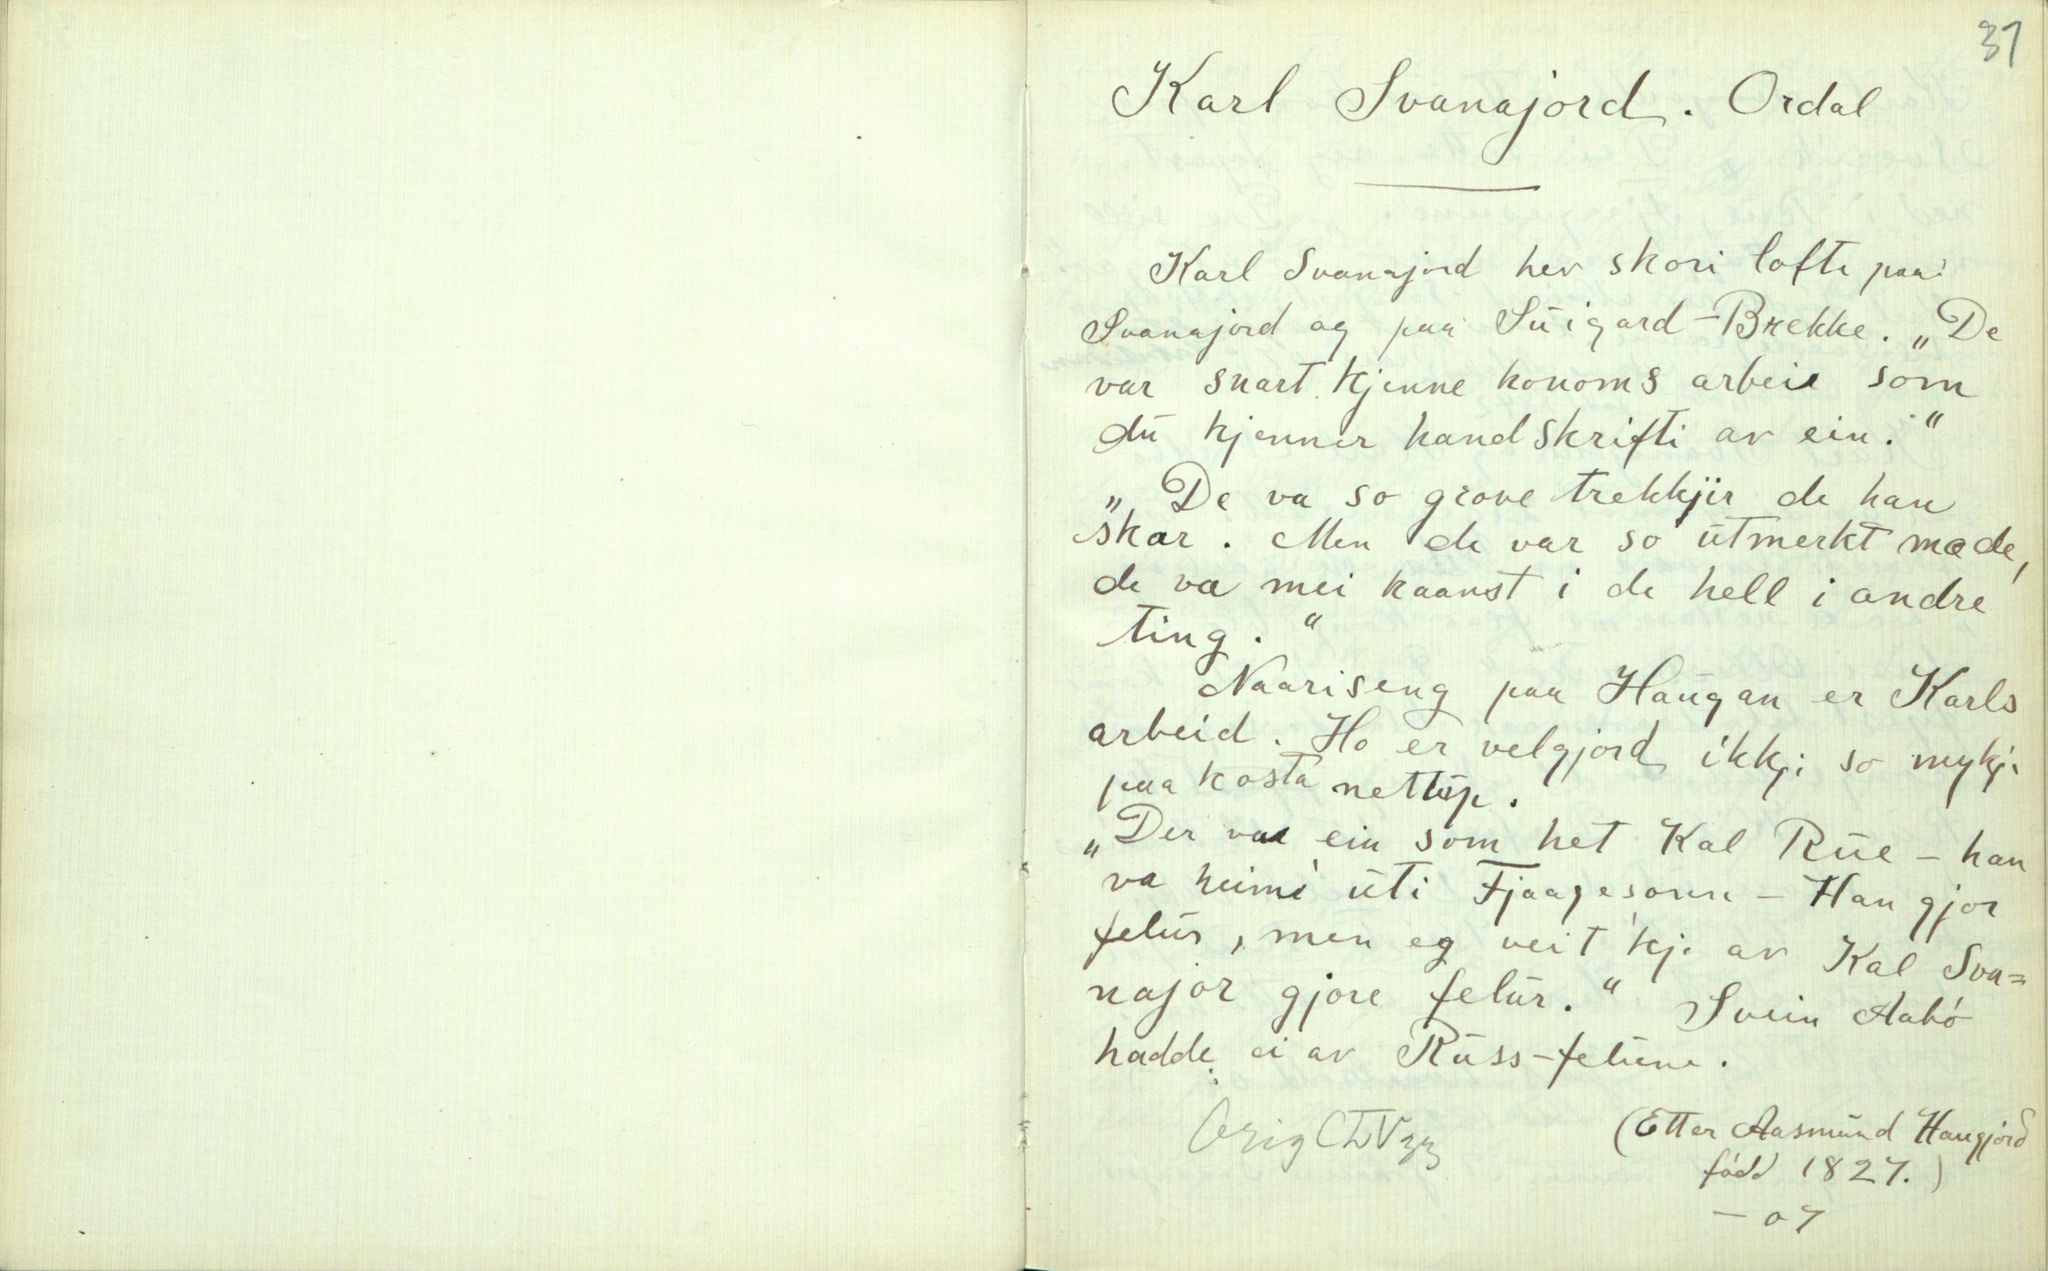 31
Karl Svanajord. Ordal
Karl Svanajord hev skori lofte paa
Svanajord og paa Suigard-Brekke. „De
var snart kjenne honoms arbeie som
du kjenner handskrifti av ein."
„De va so grove trekkjir de han
skar. Men de var so utmerkt made,
de va mei kaanst i de hell i andre
ting."
Naariseng paa Haugan er Karls
arbeid. Ho er velgjord ikkji so mykji
paa kosta nettup.
„Der var ein som het Kal Rue – han
va heime uti Fjaagesonn – Han gjor
felur, men eg veit 'kji av Kal Sva=
najor gjore felur." Svein Aabø
hadde ei av Russ-felune.
Orig
(Etter Aasmund Haugjord
fødd 1827.)
– 07